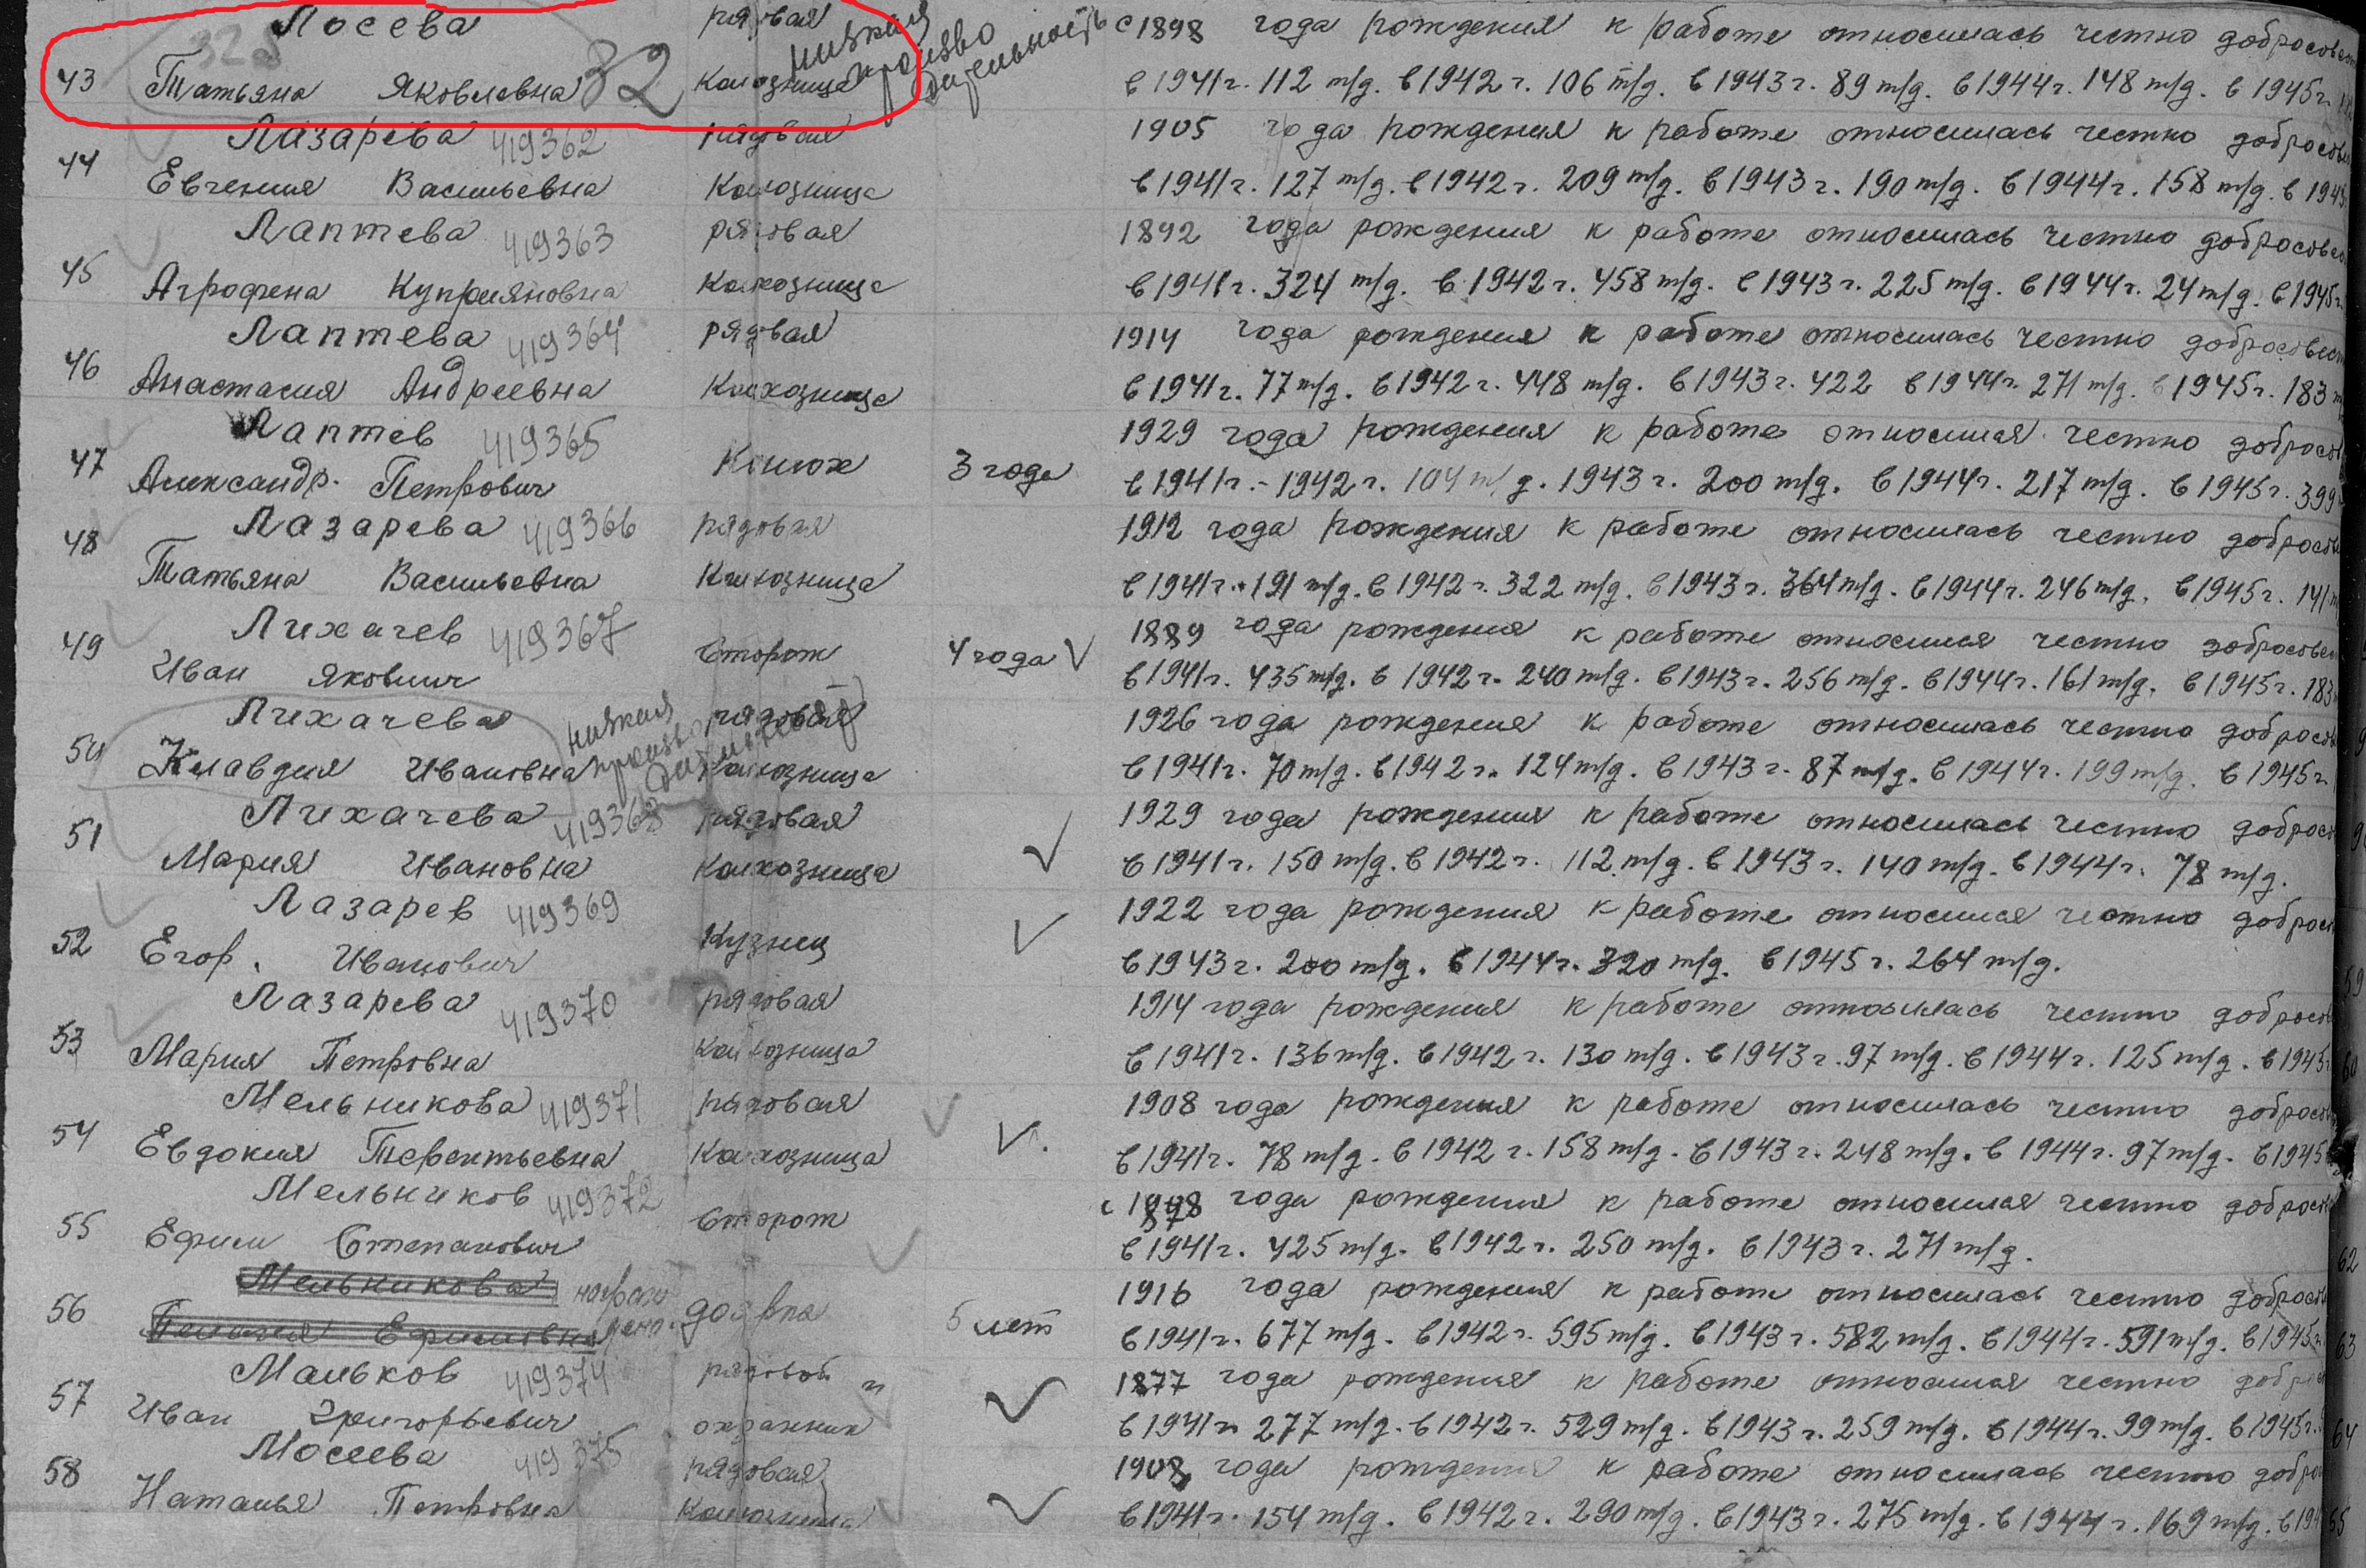 Лосева рядовая с 1898 года рождения к работе относилась честно добросовест
43 Татьяна Яковлевна 32 колхозница низкая производительность в 1941г. 112 т/д. в 1942 г. 106 т/д. в 1943 г. 89 т/д. в 1944 г. 148 т/д. в 1945 г.
Лазарева 419362 рядовая 1905 года рождения к работе относилась честно добросов
44 Евгения Васильевна колхозница в 1941 г. 127 т/д. в 1942 г. 209 т/д. в 1943 г. 190 т/д. в 1944 г. 158 т/д. в 1945
Лаптева 419363 рядовая 1892 года рождения к работе относилась честно добросовес
45 Аграфена Куприяновна колхозница в 1941 г. 324 т/д. в 1942 г. 458 т/д. в 1943 г. 225 т/д. в 1944 г. 24 т/д. в 1945 г.
Лаптева 419364 рядовая 1914 года рождения к работе относилась честно добросовест
46 Анастасия Андреевна колхозница в 1941 г. 77 т/д. в 1942 г. 448 т/д. в 1943 г. 422 в 1944 г. 271 т/д. в 1945 г. 183
Лаптев 419365 1929 года рождения к работе относился честно добросов
47 Александр. Петрович Конюх 3 года в 1941 г. - 1942 г. 104 т/д. 1943 г. 200 т/д. в 1944 г. 217 т/д. в 1945 г. 399
Лазарева 419366 рядовая 1912 года рождения к работе относилась честно добросов
48 Татьяна Васильевна колхозница в 1941 г. 191 т/д. в 1942 г. 322 т/д. в 1943 г. 364 т/д. в 1944 г. 246 т/д. в 1945 г. 141
Лихачев 419367 1889 года рождения к работе относился честно добросовес
49 Иван Яковлич Сторож 4 года V в 1941 г. 435 т/д. в 1942 г. 240 т/д. в 1943 г. 256 т/д. в 1944 г. 161 т/д. в 1945 г. 183
Лихачева рядовая 1926 года рождения к работе относилась честно добросов
50 Клавдия Ивановна низкая производительность колхозница в 1941 г. 70 т/д. в 1942 г. 124 т/д. в 1943 г. 87 т/д. в 1944 г. 199 т/д. в 1945 г
Лихачева 419368 рядовая 1929 года рождения к работе относилась честно добросо
51 Мария Ивановна колхозница V в 1941 г. 150 т/д. в 1942 г. 112 т/д. в 1943 г. 140 т/д. в 1944 г. 78 т/д.
Лазарев 419369 1922 года рождения к работе относился честно доброс
52 Егор. Иванович Кузнец V в 1943 г. 200 т/д. в 1944 г. 320 т/д. в 1945 г. 264 т/д.
Лазарева 419370 рядовая 1914 года рождения к работе относилась честно добросов
53 Мария Петровна колхозница в 1941 г. 136 т/д. в 1942 г. 130 т/д. в 1943 г. 97 т/д. в 1944 г. 125 т/д. в 1945 г
Мельникова 419371 рядовая 1908 года рождения к работе относилась честно добросов
54 Евдокия Терентьевна колхозница V. в 1941 г. 78 т/д. в 1942 г. 158 т/д. в 1943 г. 248 т/д. в 1944 г. 97 т/д. в 1945
Мельников 419372 с 1878 года рождения к работе относился честно добросов
55 Ефим Степанович Сторож в 1941 г. 425 т/д. в 1942 г. 250 т/д. в 1943 г. 271 т/д.
Мельникова 1916 года рождения к работе относилась честно добросов
56 Пелагея Ефимовна доярка 5 лет в 1941 г. 677 т/д. в 1942 г. 595 т/д. в 1943 г. 582 т/д. в 1944 г. 591 т/д. в 1945 г.
Мальков 419374 рядовой и 1877 года рождения к работе относился честно доброс
57 Иван Григорьевич охранник V в 1941 г. 277 т/д. в 1942 г. 529 т/д. в 1943 г. 259 т/д. в 1944 г. 99 т/д. в 1945 г.
Мосеева 419375 рядовая 1908 года рождения к работе относилась честно добро
58 Наталья Петровна колхозница V в 1941 г. 154 т/д. в 1942 г. 290 т/д. в 1943 г. 275 т/д. в 1944 г. 169 т/д. в 194